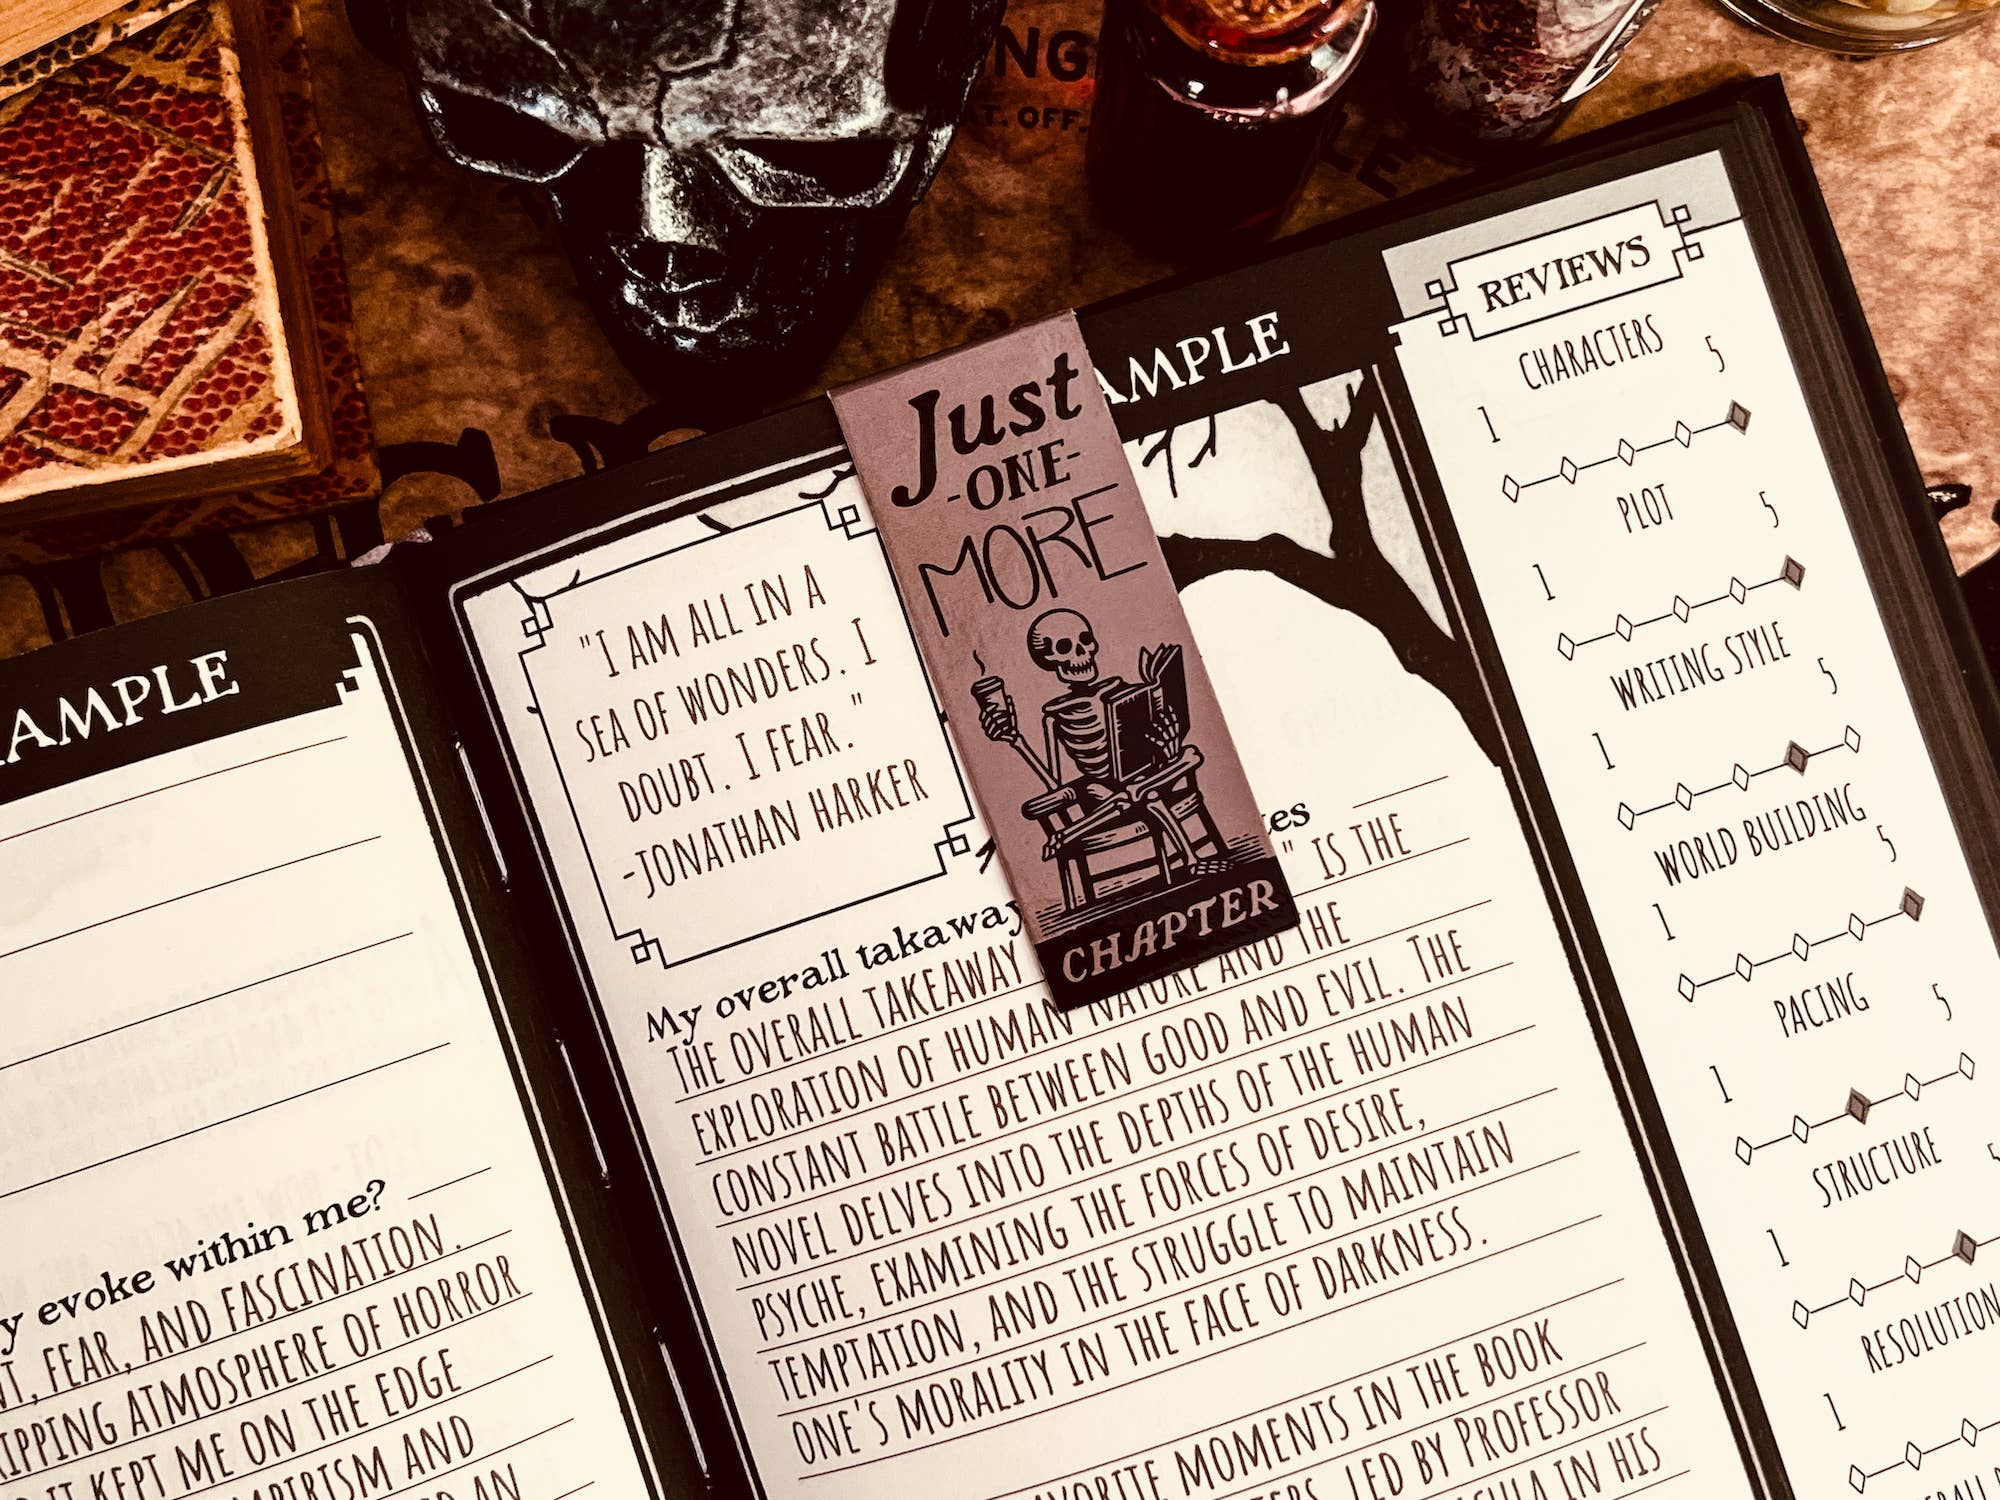 NG
AT. OFF.
AMPLE
y evoke within me?
FEAR, AND FASCINATION.
ATMOSPHERE OF HORROR
IT KEPT ME ON THE EDGE
AND
AN
AMPLE
"I AM ALL IN A
SEA OF WONDERS. I
DOUBT. I FEAR."
-JONATHAN HARKER
Just
-ONE-
MORE
CHAPTER
My overall takeaway
THE OVERALL TAKEAWAY " IS THE
EXPLORATION OF HUMAN NATURE AND THE
CONSTANT BATTLE BETWEEN GOOD AND EVIL. THE
NOVEL DELVES INTO THE DEPTHS OF THE HUMAN
PSYCHE, EXAMINING THE FORCES OF DESIRE,
TEMPTATION, AND THE STRUGGLE TO MAINTAIN
ONE'S MORALITY IN THE FACE OF DARKNESS.
MOMENTS IN THE BOOK
LED BY PROFESSOR
IN HIS
REVIEWS
CHARACTERS
1 5
PLOT
1 5
WRITING STYLE
1 5
WORLD BUILDING
1 5
PACING
1 5
STRUCTURE
1 5
RESOLUTION
1